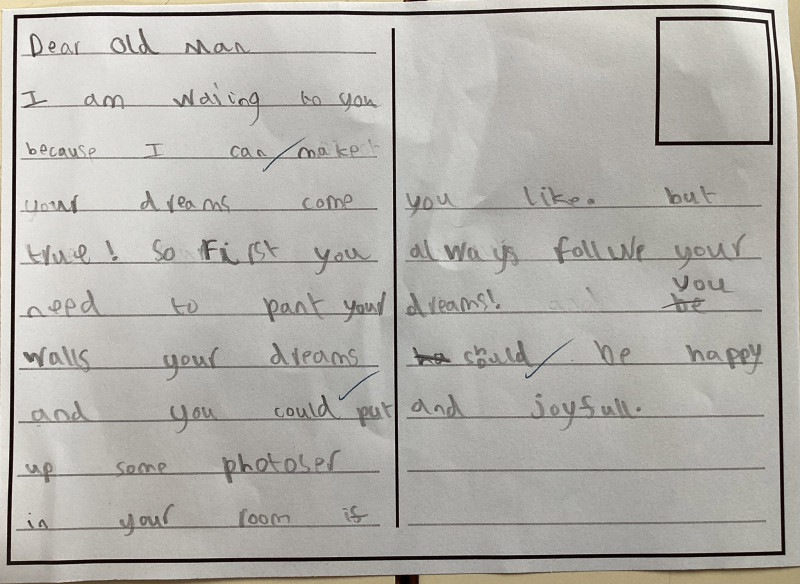 Dear old man
I am waiing to you
because I can make
your dreams come
true! So First you
need to pant your
walls your dreams
and you could put
up some photoser
in your room if
you like. but
always follwe your
dreams! you
should be happy
and joyfull.